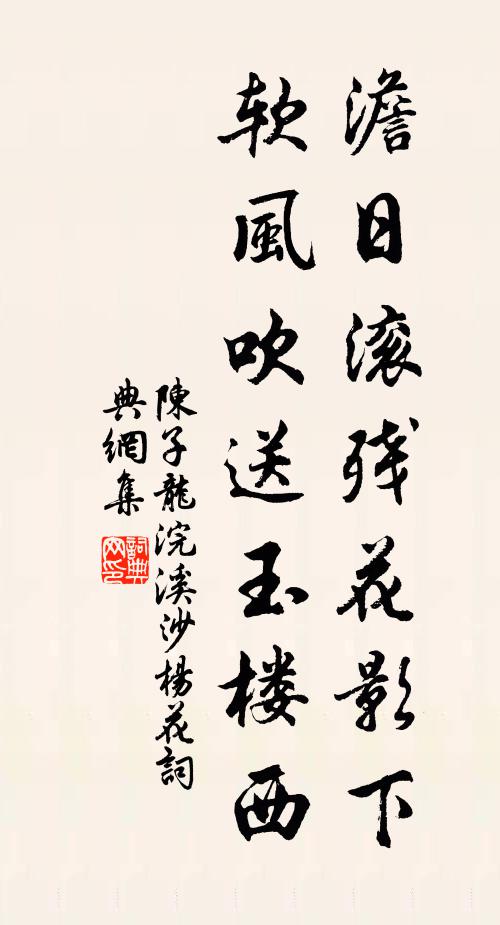 澹日滚残花影下
软風吹送玉楼西
陳子龍浣溪沙楊花詞
典網集
詞典網印